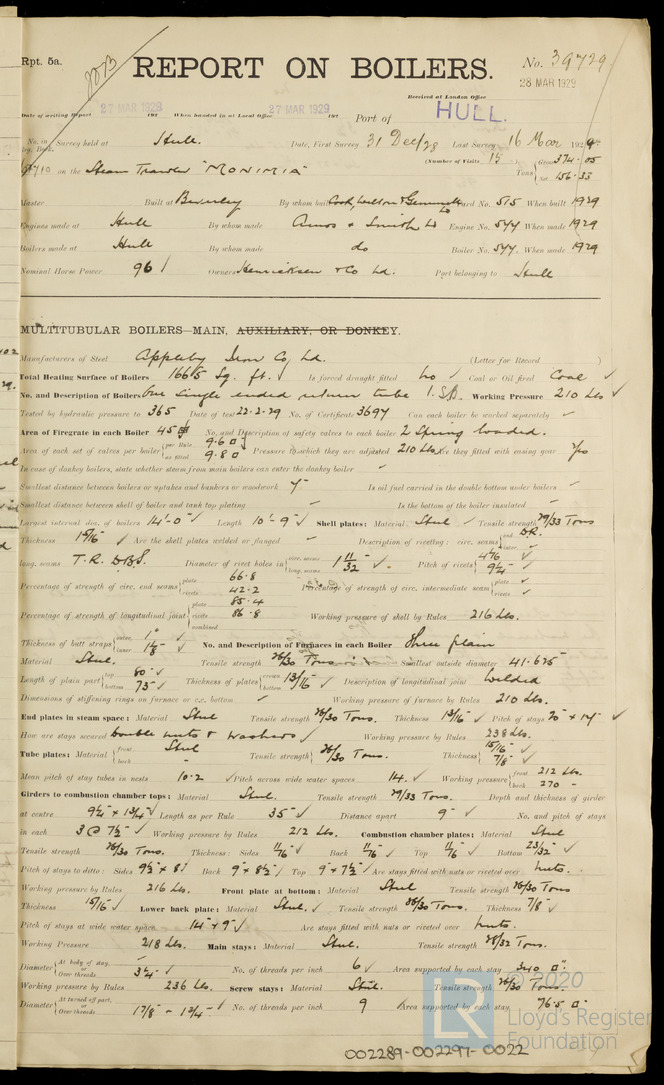 Rpt. 5a.
REPORT ON BOILERS.
No. 39729
28 MAR 1929
Received at London Office
Date of writing Report 27 MAR 1929 192 When handed in at Local Office 27 MAR 1929 192 Port of HULL.
No. in Survey held at Hull. Date, First Survey 31 Dec/28 Last Survey 16 Mar 1929
Reg. Book. (Number of Visits 15
on the Steam Trawler "MONIMIA" Tons Gross 374.05 Net 156.33
Master Built at Beverley By whom built Cook, Welton & Gemmell Ld Yard No. 515 When built 1929
Engines made at Hull By whom made Amos & Smith Ld Engine No. 544 When made 1929
Boilers made at Hull By whom made do Boiler No. 544 When made 1929
Nominal Horse Power 96 Owners Henriksen & Co Ld. Port belonging to Hull
MULTITUBULAR BOILERS—MAIN, AUXILIARY, OR DONKEY.
Manufacturers of Steel Appleby Iron Co Ld. (Letter for Record )
Total Heating Surface of Boilers 1665 Sq. ft. Is forced draught fitted no Coal or Oil fired Coal
No. and Description of Boilers One single ended return tube 1.SB. Working Pressure 210 Lbs
Tested by hydraulic pressure to 365 Date of test 22.2.29 No. of Certificate 3697 Can each boiler be worked separately –
Area of Firegrate in each Boiler 45 No. and Description of safety valves to each boiler 2 Spring loaded.
Area of each set of valves per boiler per Rule 9.6 as fitted 9.8 Pressure to which they are adjusted 210 Lbs Are they fitted with easing gear Yes
In case of donkey boilers, state whether steam from main boilers can enter the donkey boiler –
Smallest distance between boilers or uptakes and bunkers or woodwork Is oil fuel carried in the double bottom under boilers –
Smallest distance between shell of boiler and tank top plating – Is the bottom of the boiler insulated –
Largest internal dia. of boilers 14'-0" Length 10'-9" Shell plates: Material Steel Tensile strength 29/33 Tons
Thickness 15/16" Are the shell plates welded or flanged – Description of riveting: circ. seams end DR. inter. –
long. seams T.R. D.B.S. Diameter of rivet holes in circ. seams long. seams 1 11/32" Pitch of rivets 9¼"
Percentage of strength of circ. end seams plate 66.8 rivets 42.2 Percentage of strength of circ. intermediate seam plate – rivets –
Percentage of strength of longitudinal joint plate 85.4 rivets 86.8 combined Working pressure of shell by Rules 216 Lbs.
Thickness of butt straps outer 1" inner 1⅛" No. and Description of Furnaces in each Boiler Three plain
Material Steel. Tensile strength 26/30 Tons Smallest outside diameter 41.625
Length of plain part top 80" bottom 75" Thickness of plates crown bottom 13/16" Description of longitudinal joint Welded
Dimensions of stiffening rings on furnace or c.c. bottom – Working pressure of furnace by Rules 210 Lbs.
End plates in steam space: Material Steel Tensile strength 26/30 Tons. Thickness 15/16" Pitch of stays 20" x 17"
How are stays secured Double nuts & washers Working pressure by Rules 238 Lbs.
Tube plates: Material front Steel back – Tensile strength 26/30 Tons. Thickness 15/16" 7/8"
Mean pitch of stay tubes in nests 10.2 Pitch across wide water spaces 14. Working pressure front 212 Lbs. back 270 –
Girders to combustion chamber tops: Material Steel. Tensile strength 29/33 Tons. Depth and thickness of girder
at centre 9¼" x 1¾" Length as per Rule 35" Distance apart 9" No. and pitch of stays
in each 3 @ 7½" Working pressure by Rules 212 Lbs. Combustion chamber plates: Material Steel
Tensile strength 26/30 Tons. Thickness: Sides 11/16" Back 11/16" Top 11/16" Bottom 23/32"
Pitch of stays to ditto: Sides 9½" x 8" Back 9" x 8½" Top 9" x 7½" Are stays fitted with nuts or riveted over Nuts.
Working pressure by Rules 216 Lbs. Front plate at bottom: Material Steel Tensile strength 26/30 Tons
Thickness 15/16" Lower back plate: Material Steel. Tensile strength 26/30 Tons. Thickness 7/8"
Pitch of stays at wide water space 14" x 9" Are stays fitted with nuts or riveted over Nuts.
Working Pressure 218 Lbs. Main stays: Material Steel. Tensile strength 28/32 Tons.
Diameter At body of stay, or Over threads – 3¼" No. of threads per inch 6 Area supported by each stay 340 □".
Working pressure by Rules 236 Lbs. Screw stays: Material Steel. Tensile strength 26/30 Tons.
Diameter At turned off part, or Over threads 1⅞" – 1¾" No. of threads per inch 9 Area supported by each stay 76.5 □"
© 2020
Lloyd's Register
Foundation
002289-002297-0022